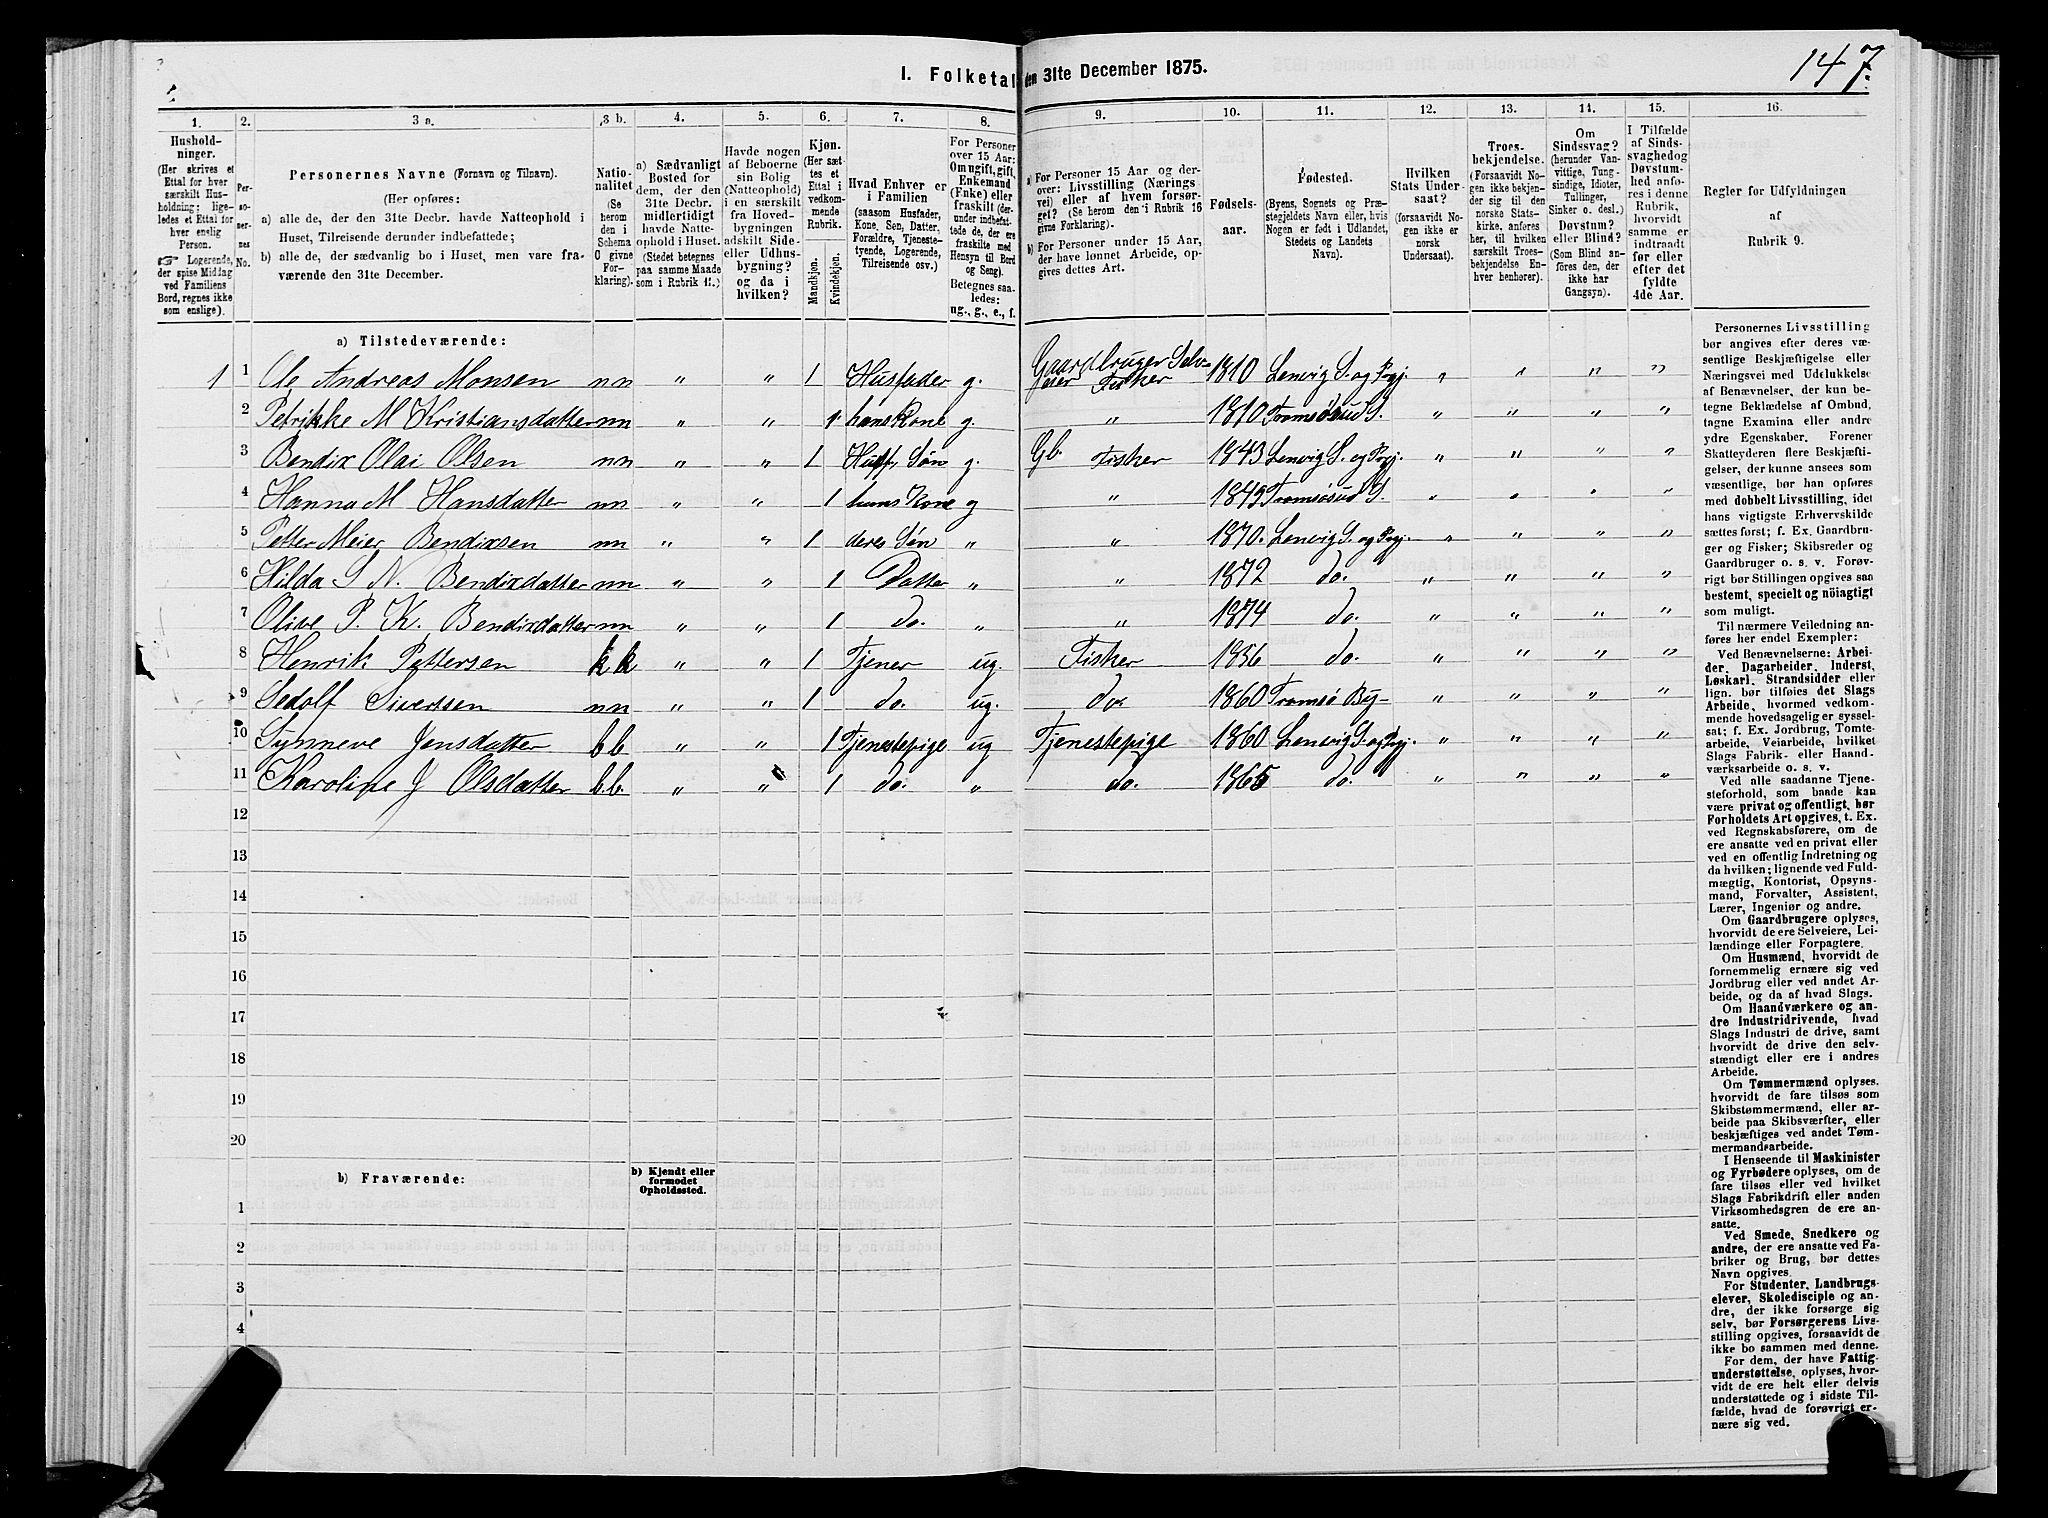 147.
I. Folketal den 31te December 1875.
1. 2. 3 a. 3 b. 4. 5. 6. 7. 8. 9. 10. 11. 12. 13. 14. 15. 16.
Hushold-
ninger.
(Her skrives et
Ettal for hver
særskilt Hus-
holdning; lige-
ledes et Ettal for
hver enslig
Person.
☞ Logerende,
der spise Middag
ved Familiens
Bord, regnes ikke
som enslige).
Per-
so-
ner-
nes
No.
Personernes Navne (Fornavn og Tilnavn).
(Her opføres:
a) alle de, der den 31te Decbr. havde Natteophold i
Huset, Tilreisende derunder indbefattede;
b) alle de, der sædvanlig bo i Huset, men vare fra-
værende den 31te December.
Natio-
nalitet
(Se
herom
den i
Schema
O givne
For-
klaring).
a) Sædvanligt
Bosted for
dem, der den
31te Decbr.
midlertidigt
havde Natte-
ophold i Huset.
(Stedet betegnes
paa samme Maade
som i Rubrik 11.)
Havde nogen
af Beboerne
sin Bolig
(Natteophold)
i en særskilt
fra Hoved-
bygningen
adskilt Side-
eller Udhus-
bygning?
og da i
hvilken?
Kjøn.
(Her sæt-
tes et
Ettal i
vedkom-
mende
Rubrik.
Mandkjøn.
Kvindekjøn.
Hvad Enhver er
i Familien
(saasom Husfader,
Kone, Søn, Datter,
Forældre, Tjeneste-
tyende, Logerende,
Tilreisende osv.)
For Personer
over 15 Aar:
Om ugift, gift,
Enkemand
(Enke) eller
fraskilt (der-
under indbefat-
tede de, der ere
fraskilte med
Hensyn til Bord
og Seng).
Betegnes saa-
ledes:
ug., g., e., f.
a) For Personer 15 Aar og der-
over: Livsstilling (Nærings-
vei) eller af hvem forsør-
get? (Se herom den i Rubrik 16
givne Forklaring).
b) For Personer under 15 Aar,
der have lønnet Arbeide, op-
gives dettes Art.
Fødsels-
aar.
Fødested.
(Byens, Sognets og Præ-
stegjeldets Navn eller, hvis
Nogen er født i Udlandet,
Stedets og Landets
Navn).
Hvilken
Stats Under-
saat?
(forsaavidt No-
gen ikke er
norsk
Undersaat).
Troes-
bekjendelse.
(Forsaavidt No-
gen ikke bekjen-
der sig til den
norske Stats-
kirke, anføres
her, til hvilken
særskilt Troes-
bekjendelse En-
hver henhører).
Om
Sindssvag?
(herunder Van-
vittige, Tung-
sindige, Idioter,
Tullinger,
Sinker o. desl.)
Døvstum?
eller Blind?
(Som Blind an-
føres den, der
ikke har
Gangsyn).
I Tilfælde
af Sinds-
svaghed og
Døvstum-
hed anfø-
res i denne
Rubrik,
hvorvidt
samme er
indtraadt
før eller
efter det
fyldte
4de Aar.
Regler for Udfyldningen
af
Rubrik 9.
a) Tilstedeværende:
1 1 Ole Andreas Monsen nn „ „ 1 Husfader g. Gaardbruger Selv-
eier Fisker 1810 Lenvig S. og Prgj. „ „ „ „
2 Petrikke M Kristiansdatter nn „ „ 1 hans Kone g. „ 1810 Tromsøsund S. „ „ „ „
3 Bendix Olai Olsen nn „ „ 1 Husf. Søn g. Gb. Fisker 1843 Lenvig S. og Prgj. „ „ „ „
4 Hanna M Hansdatter nn „ „ 1 hans Kone g „ 1845 Tromsøsund S. „ „ „ „
5 Petter Meier Bendixsen nn „ „ 1 deres Søn „ „ 1870. Lenvig S. og Prgj. „ „ „ „
6 Hilda S N. Bendixdatter nn „ „ 1 Datter „ „ 1872 do. „ „ „ „
7 Olive P. K. Bendixdatter nn „ „ 1 do. „ „ 1874 do. „ „ „ „
8 Henrik Pettersen k.k „ „ 1 Tjener ug. Fisker 1856 do. „ „ „ „
9 Sedolf Sivertsen nn „ „ 1 do. ug. do 1860 Tromsø By- „ „ „ „
10 Synneve Jensdatter b.b. „ „ 1 Tjenestepige ug Tjenestepige 1860 Lenvig S. og Prgj. „ „ „ „
11 Karoline J Olsdatter b.b. „ „ 1 do. „ do. 1865 do. „ „ „ „
12
13
14
15
16
17
18
19
20
b) Fraværende:
b) Kjendt eller
formodet
Opholdssted.
1
2
3
4
Personernes Livsstilling
bør angives efter deres væ-
sentlige Beskjæftigelse eller
Næringsvei med Udelukkelse
af Benævnelser, der kun be-
tegne Beklædelse af Ombud,
tagne Examina eller andre
ydre Egenskaber. Forener
Skatteyderen flere Beskjæfti-
gelser, der kunne ansees som
væsentlige, bør han opføres
med dobbelt Livsstilling, idet
hans vigtigste Erhvervskilde
sættes først; f. Ex. Gaardbru-
ger og Fisker; Skibsreder og
Gaardbruger o. s. v. Forøv-
rigt bør Stillingen opgives saa
bestemt, specielt og nöiagtigt
som muligt.
Til nærmere Veiledning an-
føres her endel Exempler:
Ved Benævnelserne: Arbei-
der, Dagarbeider, Inderst,
Løskarl, Strandsidder eller
lign. bør tilføies det Slags
Arbeide, hvormed vedkom-
mende hovedsagelig er syssel-
sat; f. Ex. Jordbrug, Tomte-
arbeide, Veiarbeide, hvilket
Slags Fabrik- eller Haand-
værksarbeide o. s. v.
Ved alle saadanne Tjene-
steforhold, som baade kan
være privat og offentligt, bør
Forholdets Art opgives, t. Ex.
ved Regnskabsførere, om de
ere ansatte ved en privat eller
ved en offentlig Indretning og
da hvilken; lignende ved Fuld-
mægtig, Kontorist, Opsyns-
mand, Forvalter, Assistent,
Lærer, Ingeniør og andre.
Om Gaardbrugere oplyses,
hvorvidt de ere Selveiere, Lei-
lændinge eller Forpagtere.
Om Husmænd, hvorvidt de
fornemmelig ernære sig ved
Jordbrug eller ved andet Ar-
beide, og da af hvad Slags.
Om Haandværkere og an-
dre Industridrivende, hvad
Slags Industri de drive, samt
hvorvidt de drive den selv-
stændigt eller ere i andres
Arbeide.
Om Tømmermænd oplyses,
hvorvidt de fare tilsøs som
Skibstømmermænd, eller ar-
beide paa Skibsværfter, eller
beskjæftiges ved andet Tøm-
mermandsarbeide.
I Henseende til Maskinister
og Fyrbødere oplyses, om de
fare tilsøs eller ved hvilket
Slags Fabrikdrift eller anden
Virksomhedsgren de ere an-
satte.
Ved Smede, Snedkere og
andre, der ere ansatte ved Fa-
briker og Brug, bør dettes
Navn opgives.
For Studenter, Landbrugs-
elever, Skoledisciple og an-
dre, der ikke forsørge sig
selv, bør Forsørgerens Livs-
stilling opgives, forsaavidt de
ikke bo sammen med denne.
For dem, der have Fattig-
understøttelse, oplyses, hvor-
vidt de ere helt eller delvis
understøttede og i sidste Til-
fælde, hvad de forøvrigt er-
nære sig ved.